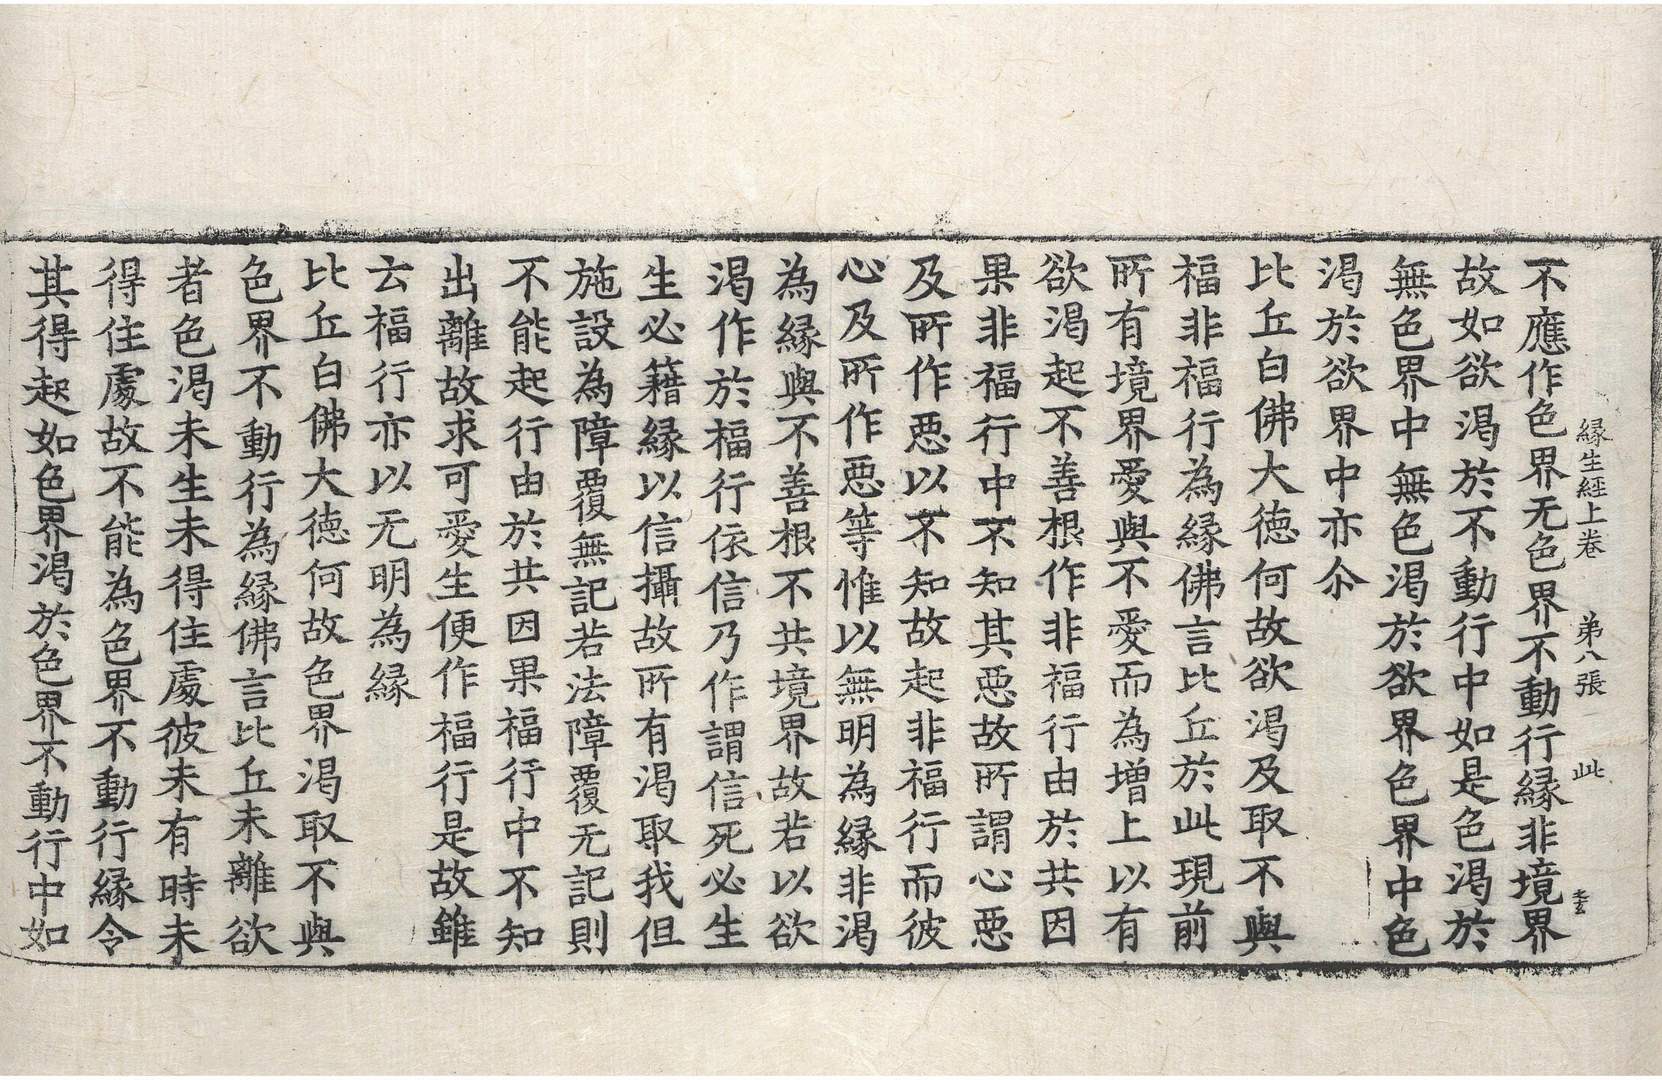 縁生經上卷 苐八張 此
不應作色界无色界不動行縁非境界
故如欲渇於不動行中如是色渇於
無色界中無色渇於欲界色界中色
渇於欲界中亦尒
比丘白佛大徳何故欲渇及取不與
福非福行為縁佛言比丘於此現前
所有境界愛與不愛而為增上以有
欲渇起不善根作非福行由於共因
果非福行中不知其惡故所謂心惡
及所作惡以不知故起非福行而彼
心及所作惡等惟以無明為縁非渇
為縁與不善根不共境界故若以欲
渇作於福行依信乃作謂信死必生
生必籍縁以信攝故所有渇取我但
施設為障覆無記若法障覆无記則
不能起行由於共因果福行中不知
出離故求可愛生便作福行是故雖
云福行亦以无明為縁
比丘白佛大徳何故色界渇取不與
色界不動行為縁佛言比丘未離欲
者色渇未生未得住處彼未有時未
得住處故不能為色界不動行縁令
其得起如色界渇於色界不動行中如